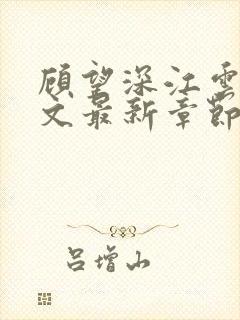 顾望深江雲
文最新章節
吕增山